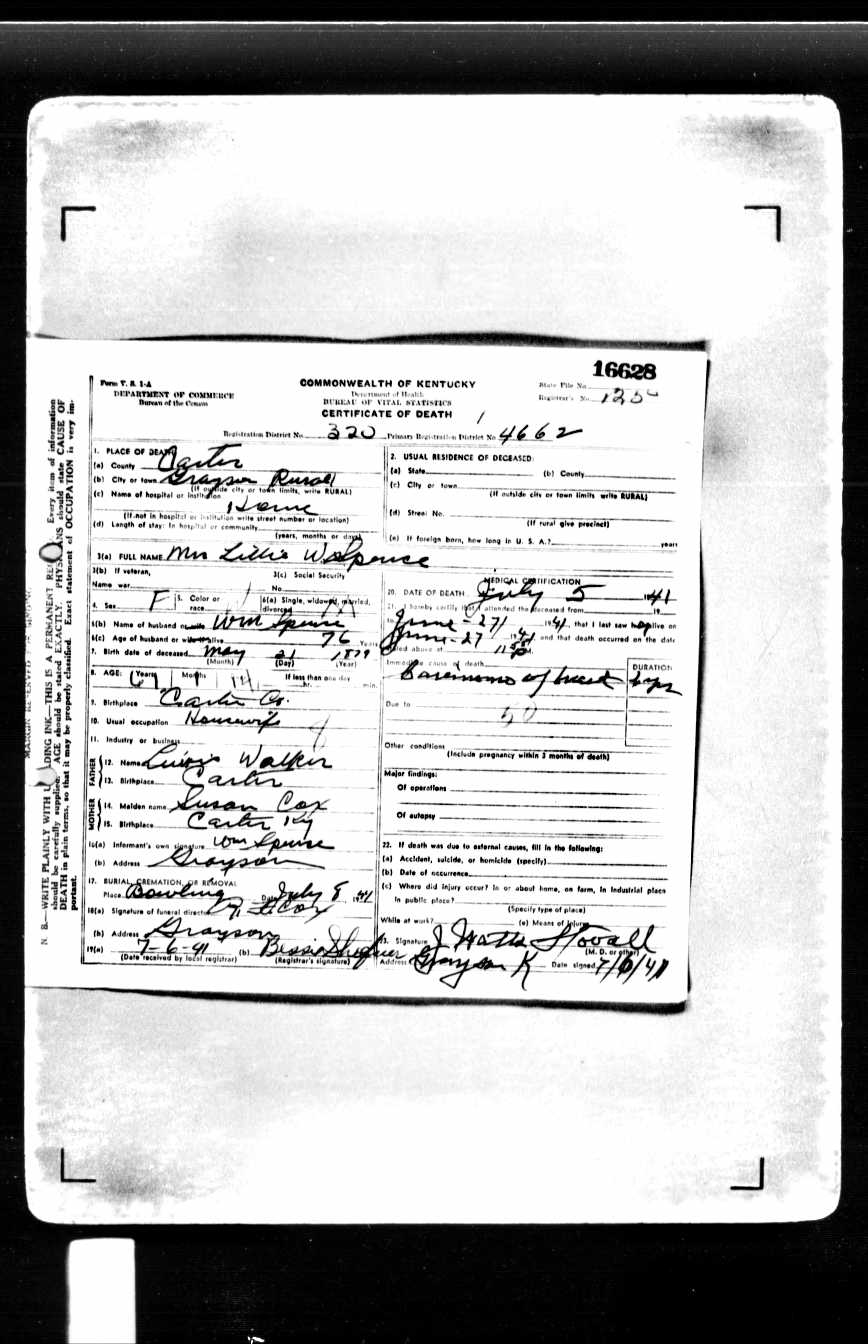 16628
Form V. S. 1-A
DEPARTMENT OF COMMERCE
Bureau of the Census
COMMONWEALTH OF KENTUCKY
Department of Health
BUREAU OF VITAL STATISTICS
CERTIFICATE OF DEATH
State File No.
Registrar's No. 125
Registration District No. 320 Primary Registration District No. 4662
1. PLACE OF DEATH
(a) County Carter
(b) City or town Grayson Rural
(If outside city or town limits, write RURAL)
(c) Name of hospital or institution
Home
(If not in hospital or institution write street number or location)
(d) Length of stay: In hospital or community
(years, months or days)
2. USUAL RESIDENCE OF DECEASED:
(a) State (b) County
(c) City or town
(If outside city or town limits write RURAL)
(d) Street No.
(If rural give precinct)
(e) If foreign born, how long in U. S. A.? years
3(a) FULL NAME Mrs Lillie W Spence
3(b) If veteran,
Name war
3(c) Social Security
No.
4. Sex F 5. Color or
race
6(a) Single, widowed, married,
divorced M
6(b) Name of husband or wife Wm Spence
6(c) Age of husband or wife if alive 76 Years
7. Birth date of deceased May 21 1879
(Month) (Day) (Year)
8. AGE: Years Months 14 If less than one day
hr. min.
9. Birthplace Carter Co.
10. Usual occupation Housewife
11. Industry or business
FATHER
12. Name Walker
13. Birthplace Carter
MOTHER
14. Maiden name Susan Cox
15. Birthplace Carter Ky
16(a) Informant's own signature Wm Spence
(b) Address Grayson
17. BURIAL, CREMATION, OR REMOVAL
Place Bowling Date July 8 1941
18(a) Signature of funeral director Cox
(b) Address Grayson
19(a) 7-6-41 (b) Bessie
(Date received by local registrar) (Registrar's signature)
MEDICAL CERTIFICATION
20. DATE OF DEATH July 5 1941
21. I hereby certify that I attended the deceased from 19
to June-27 1941, that I last saw h alive on
June-27 1941, and that death occurred on the date
stated above at 11
Immediate cause of death
DURATION
Carcinoma of breast
Due to
50
Other conditions
(Include pregnancy within 3 months of death)
Major findings:
Of operations
Of autopsy
22. If death was due to external causes, fill in the following:
(a) Accident, suicide, or homicide (specify)
(b) Date of occurrence
(c) Where did injury occur? In or about home, on farm, in industrial place
In public place?
(Specify type of place)
While at work? (e) Means of Injury
23. Signature J Watts Stovall
(M. D. or other)
Address Grayson K Date signed 7/6/41
N. B.—WRITE PLAINLY WITH UNFADING INK—THIS IS A PERMANENT RECORD. Every item of information
should be carefully supplied. AGE should be stated EXACTLY. PHYSICIANS should state CAUSE OF
DEATH in plain terms, so that it may be properly classified. Exact statement of OCCUPATION is very im-
portant.